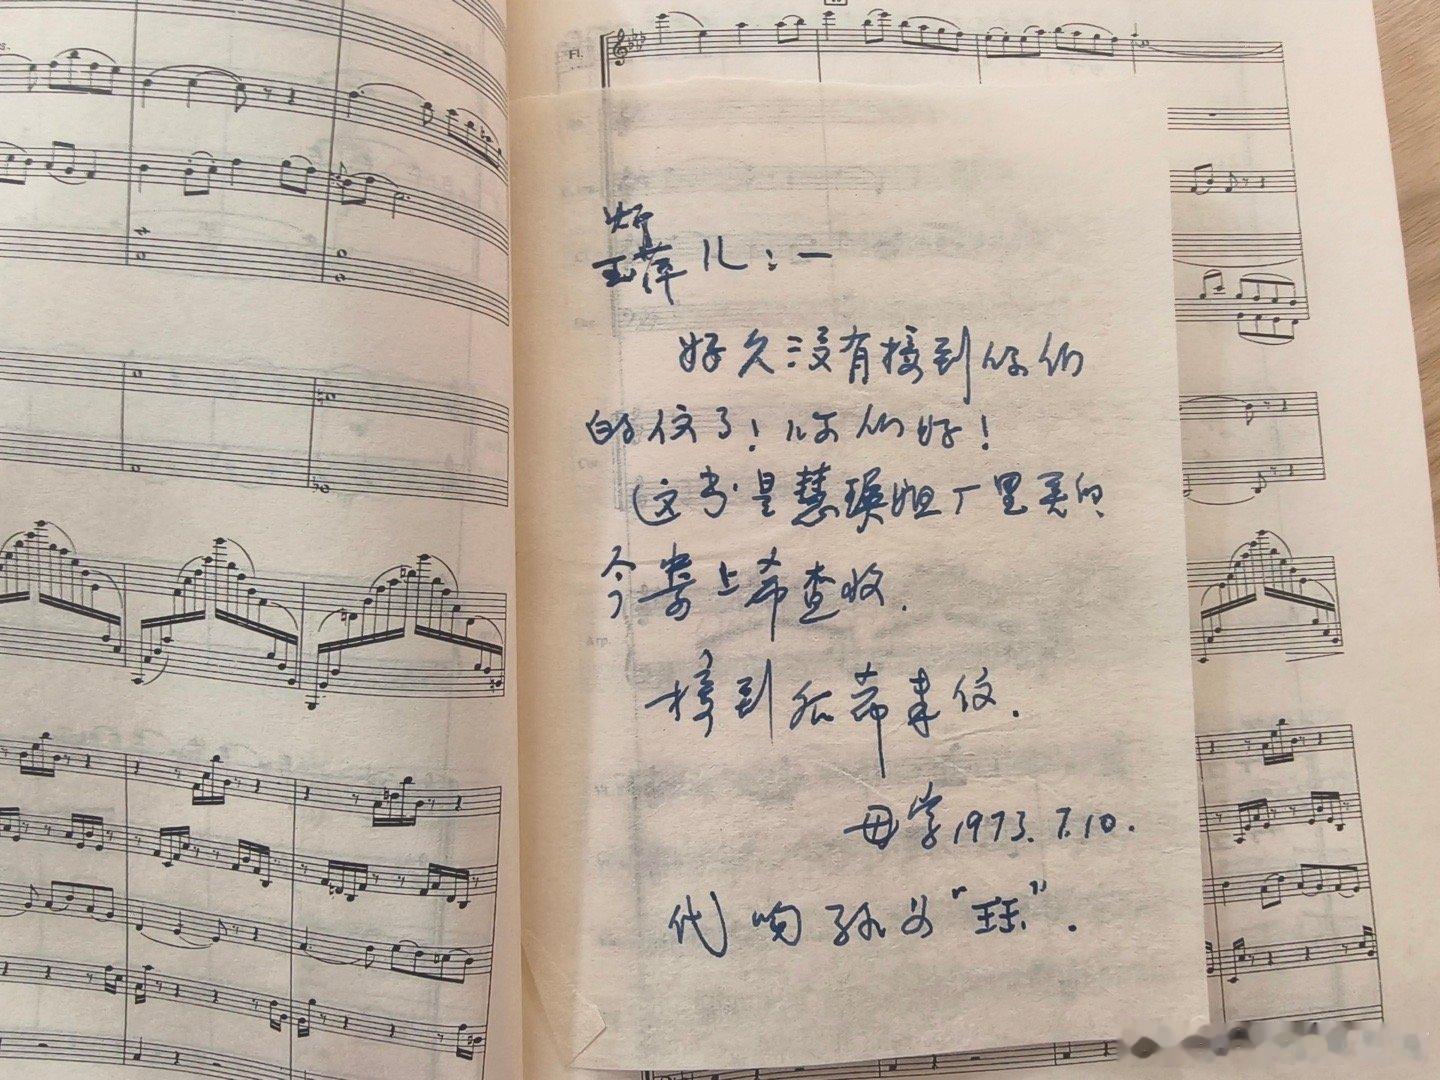 Fl.
炉
玉萍儿：一
好久没有接到你们
的信了！你们好！
这书是慧瑛姐厂里买的
今寄上希查收.
接到后希来信.
母字1973.7.10.
代吻孙女“珏”.